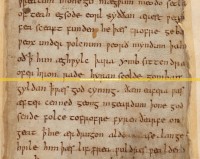 þreatum monegū mægþum meodo setla
of teah egsode eorl syððan ærest ƿear
feasceaft funden he þæs frofre geba
ƿeox under ƿolcnum ƿeorð myndum þah
oð þ him æghƿylc þara ymb sittendra
ofer hron rade hyran scolde gomban
gyldan þæt ƿæs god cyning. ðæm eafera ƿæs
æfter cenned geong in geardum þone god
sende folce tofrofre fyren ðearfe on
geat þ hie ær drugon aldor ase. lange
hƿile him þæs lif frea ƿuldres ƿealdend